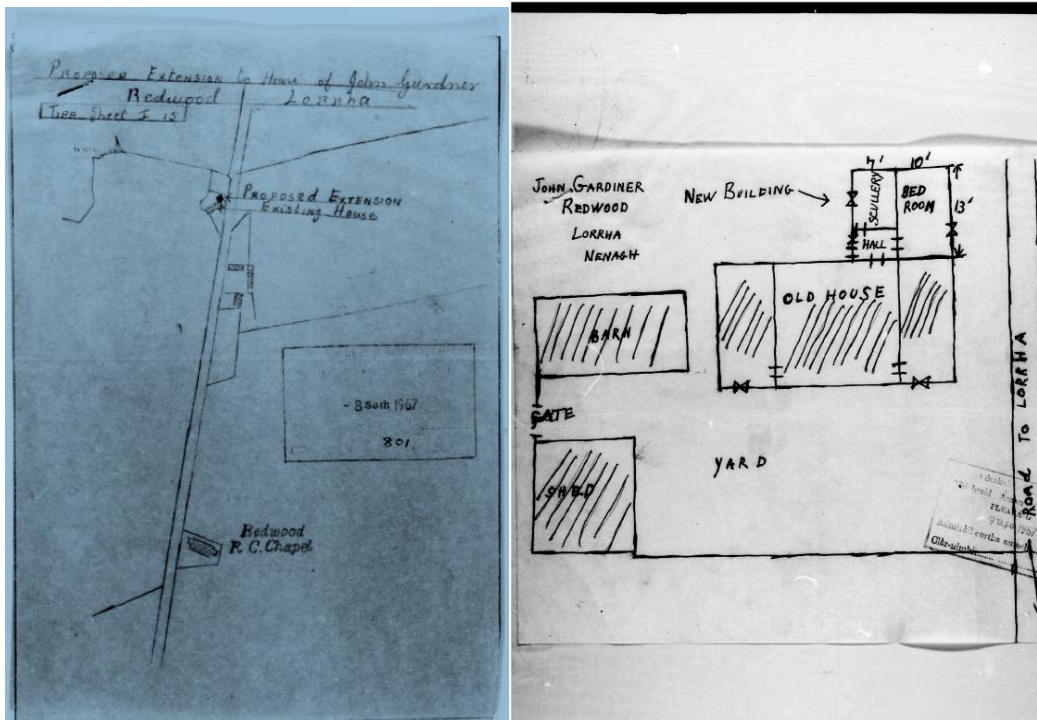 Proposed Extension to House of John Gardner
Redwood Lorrha
Tipp Sheet I 15
Proposed Extension
Existing House
-8 Samh 1967
801
Redwood
R.C. Chapel
John Gardiner
Redwood
Lorrha
Nenagh
New Building
7'
10'
Scullery
Bed
Room
13'
Hall
Old House
Barn
Gate
Shed
Yard
Road to Lorrha
1967